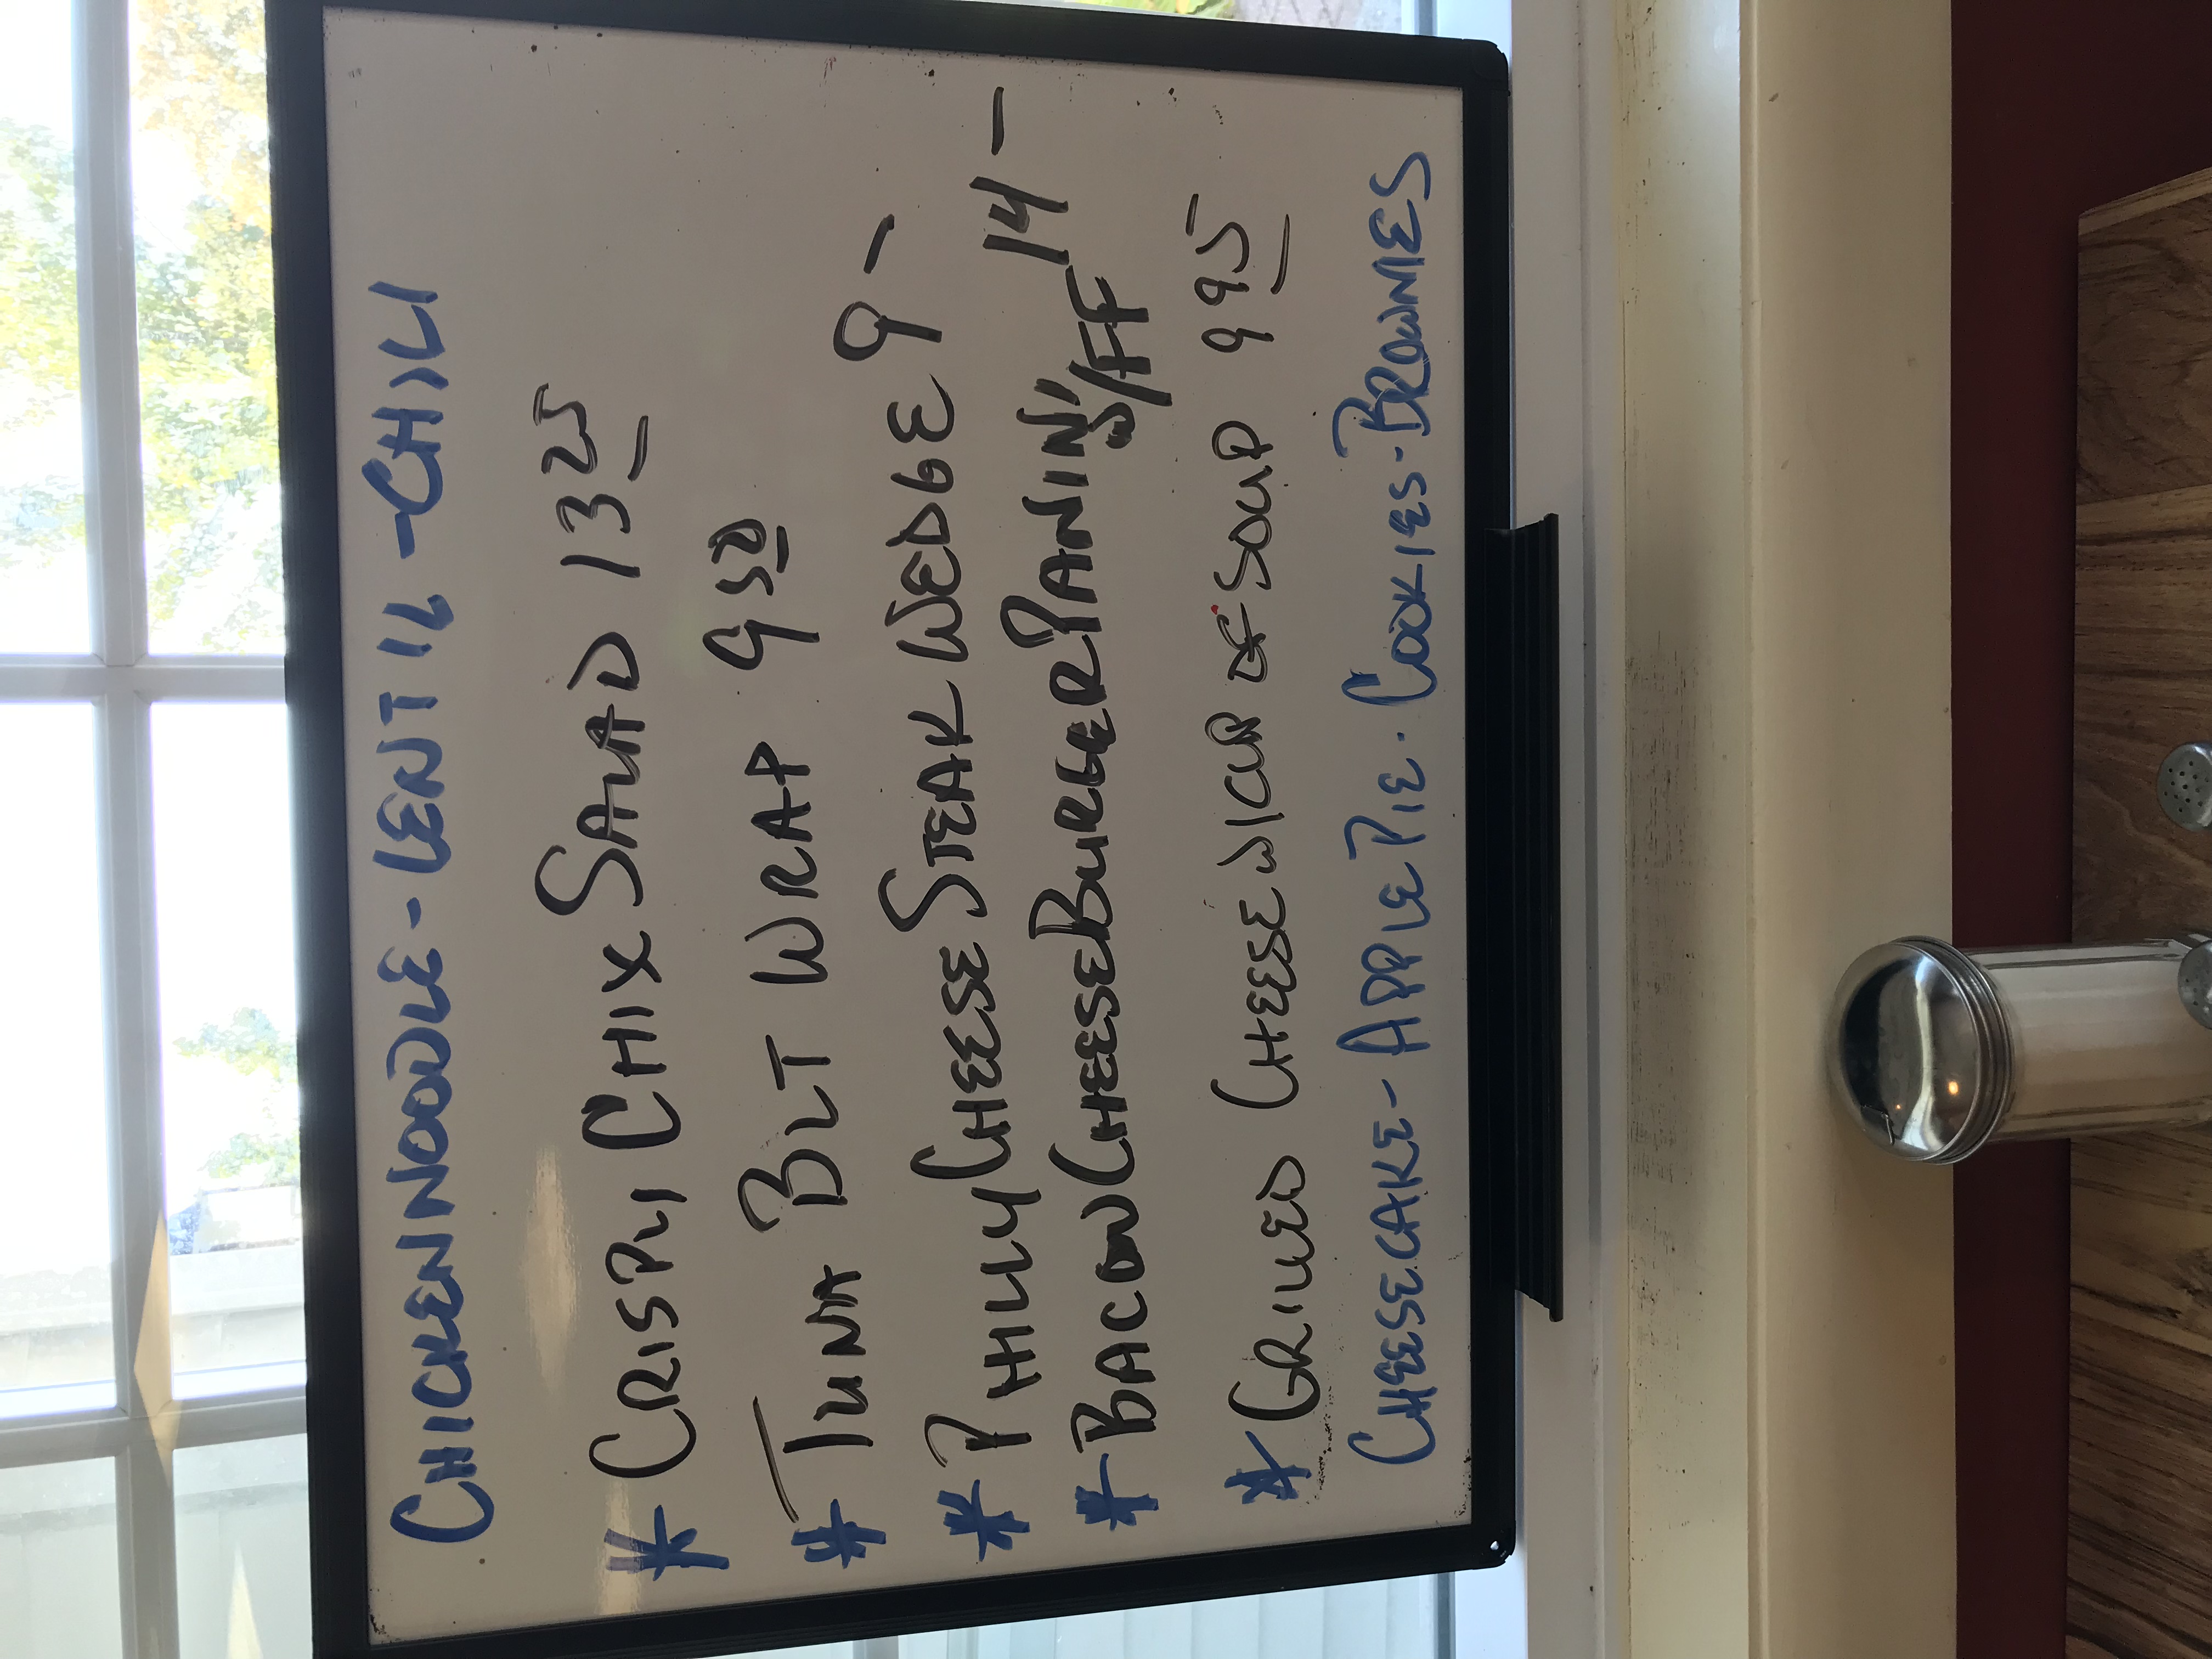 CHICKEN NOODLE - LENTIL - CHILI
* CRISPY CHIX SALAD 13 25
* TUNA BLT WRAP 9 50
* PHILLY CHEESE STEAK WEDGE 9 -
* BACON CHEESEBURGER PANINI W/FF 14 -
* GRILLED CHEESE W/CUP OF SOUP 9 95
CHEESECAKE - APPLE PIE . COOKIES - BROWNIES